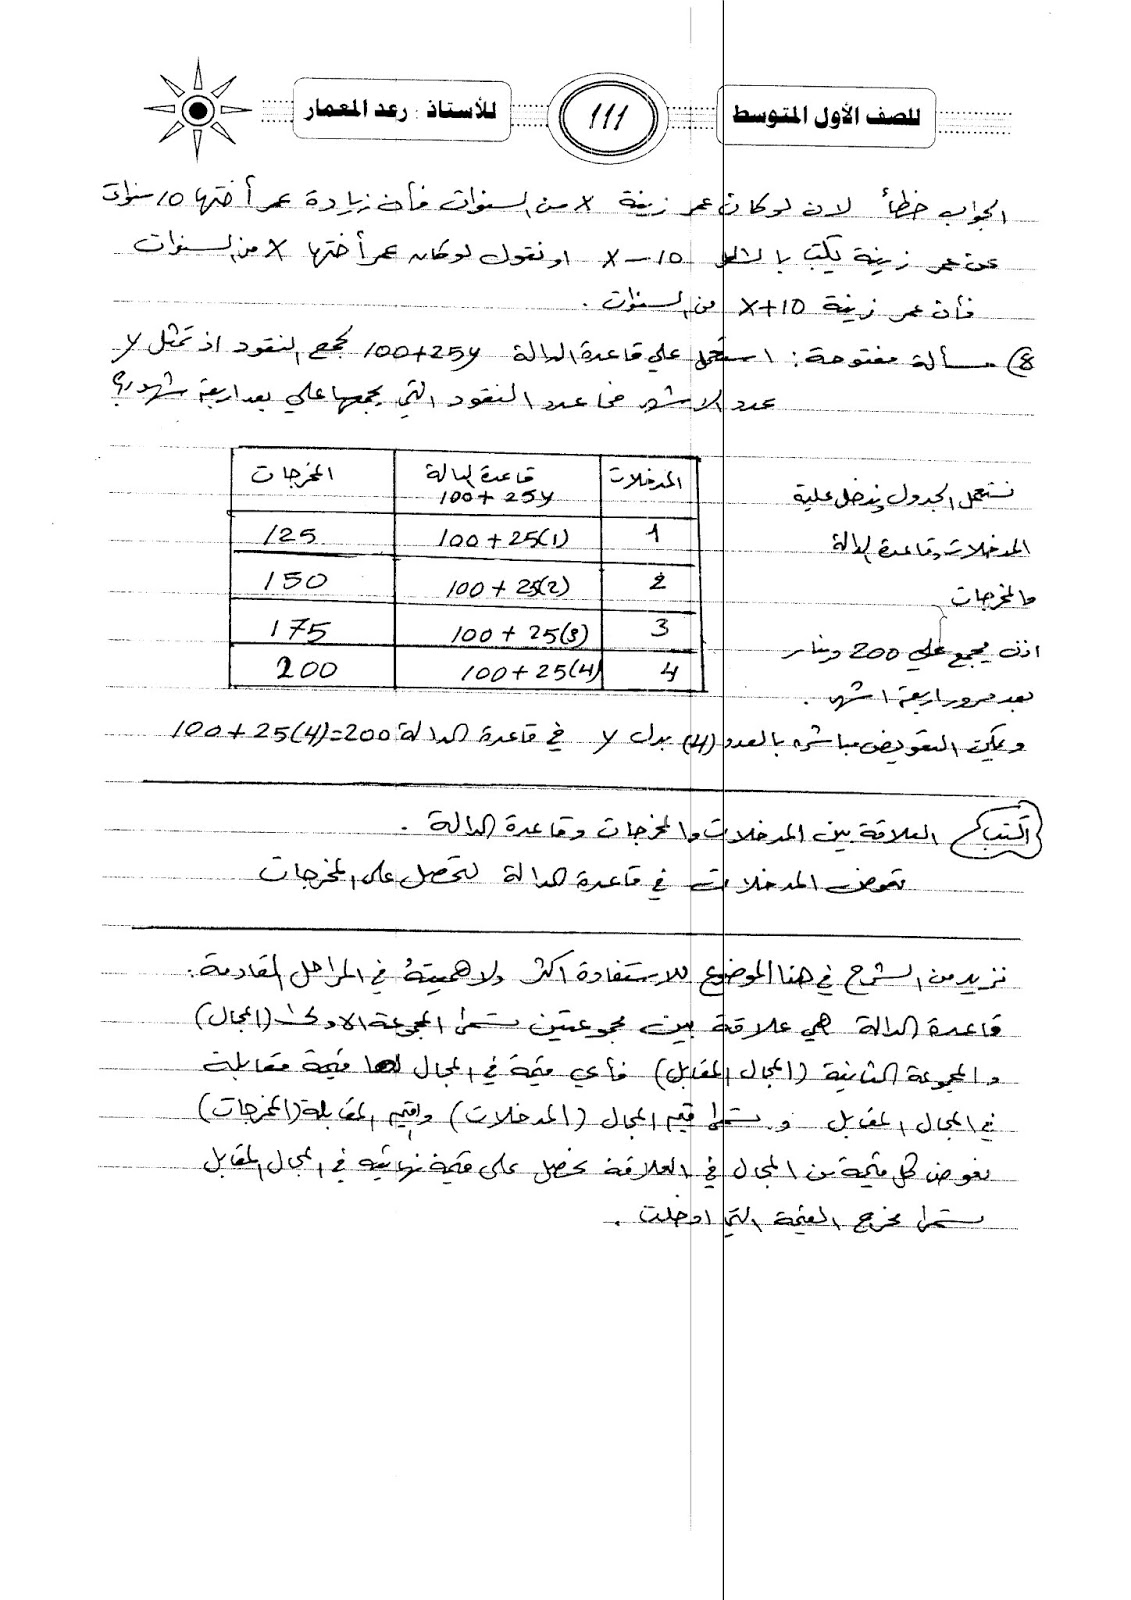 للصف الأول المتوسط
111
للأستاذ : رعد المعمار
الجواب خطأ لان لو كان عمر زينة x من السنوات فأن زيادة عمر أختها 10 سنوات
عن عمر زينة يكتب بالشكل x-10 او نقول لو كان عمر أختها x من السنوات
فأن عمر زينة x+10 من السنوات .
8) مسألة مفتوحة : استعمل علي قاعدة الدالة 100+25y لجمع النقود اذ تمثل y
عدد الاشهر فما عدد النقود التي يجمعها علي بعد اربعة شهور؟
المدخلات | قاعدة الدالة 100+25y | المخرجات
1 | 100+25(1) | 125
2 | 100+25(2) | 150
3 | 100+25(3) | 175
4 | 100+25(4) | 200
نستعمل الجدول ندخل علية
المدخلات وقاعدة الدالة
والمخرجات
اذن يجمع علي 200 دينار
بعد مرور اربعة اشهر .
ويمكن التعويض مباشره بالعدد (4) بدل y في قاعدة الدالة 100+25(4)=200
اكتب العلاقة بين المدخلات والمخرجات وقاعدة الدالة .
نعوض المدخلات في قاعدة الدالة لنحصل على المخرجات
نزيد من الشرح في هذا الموضوع للاستفادة اكثر ولاهميتة في المراحل القادمة :
قاعدة الدالة هي علاقة بين مجموعتين تسمى المجموعة الاولى (المجال)
والمجموعة الثانية (المجال المقابل) فأي قيمة في المجال لها قيمة مقابلة
في المجال المقابل و تسمى قيم المجال (المدخلات) والقيم المقابلة (المخرجات)
نعوض كل قيمة من المجال في العلاقة نحصل على قيمة نهائية في المجال المقابل
تسمى مخرج القيمة التي ادخلت .